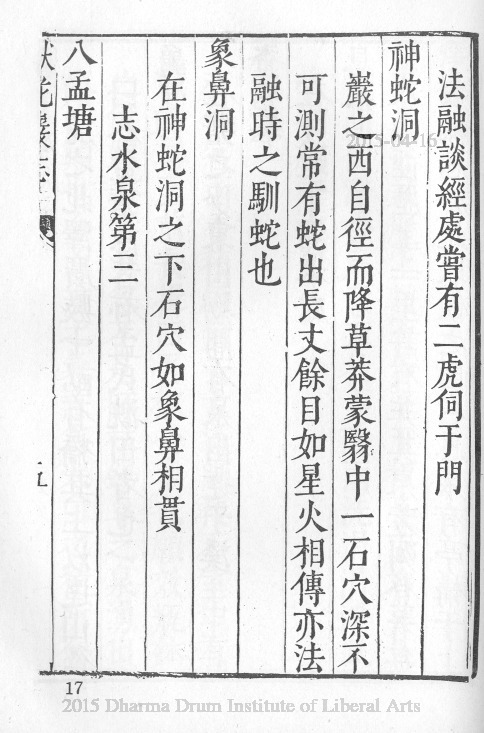 法融談經處嘗有二虎伺于門
神蛇洞
巖之西自徑而降草莽蒙翳中一石穴深不
可測常有蛇出長丈餘目如星火相傳亦法
融時之馴蛇也
象鼻洞
在神蛇洞之下石穴如象鼻相貫
志水泉第三
八孟塘
五
17
2015-04-16
2015 Dharma Drum Institute of Liberal Arts